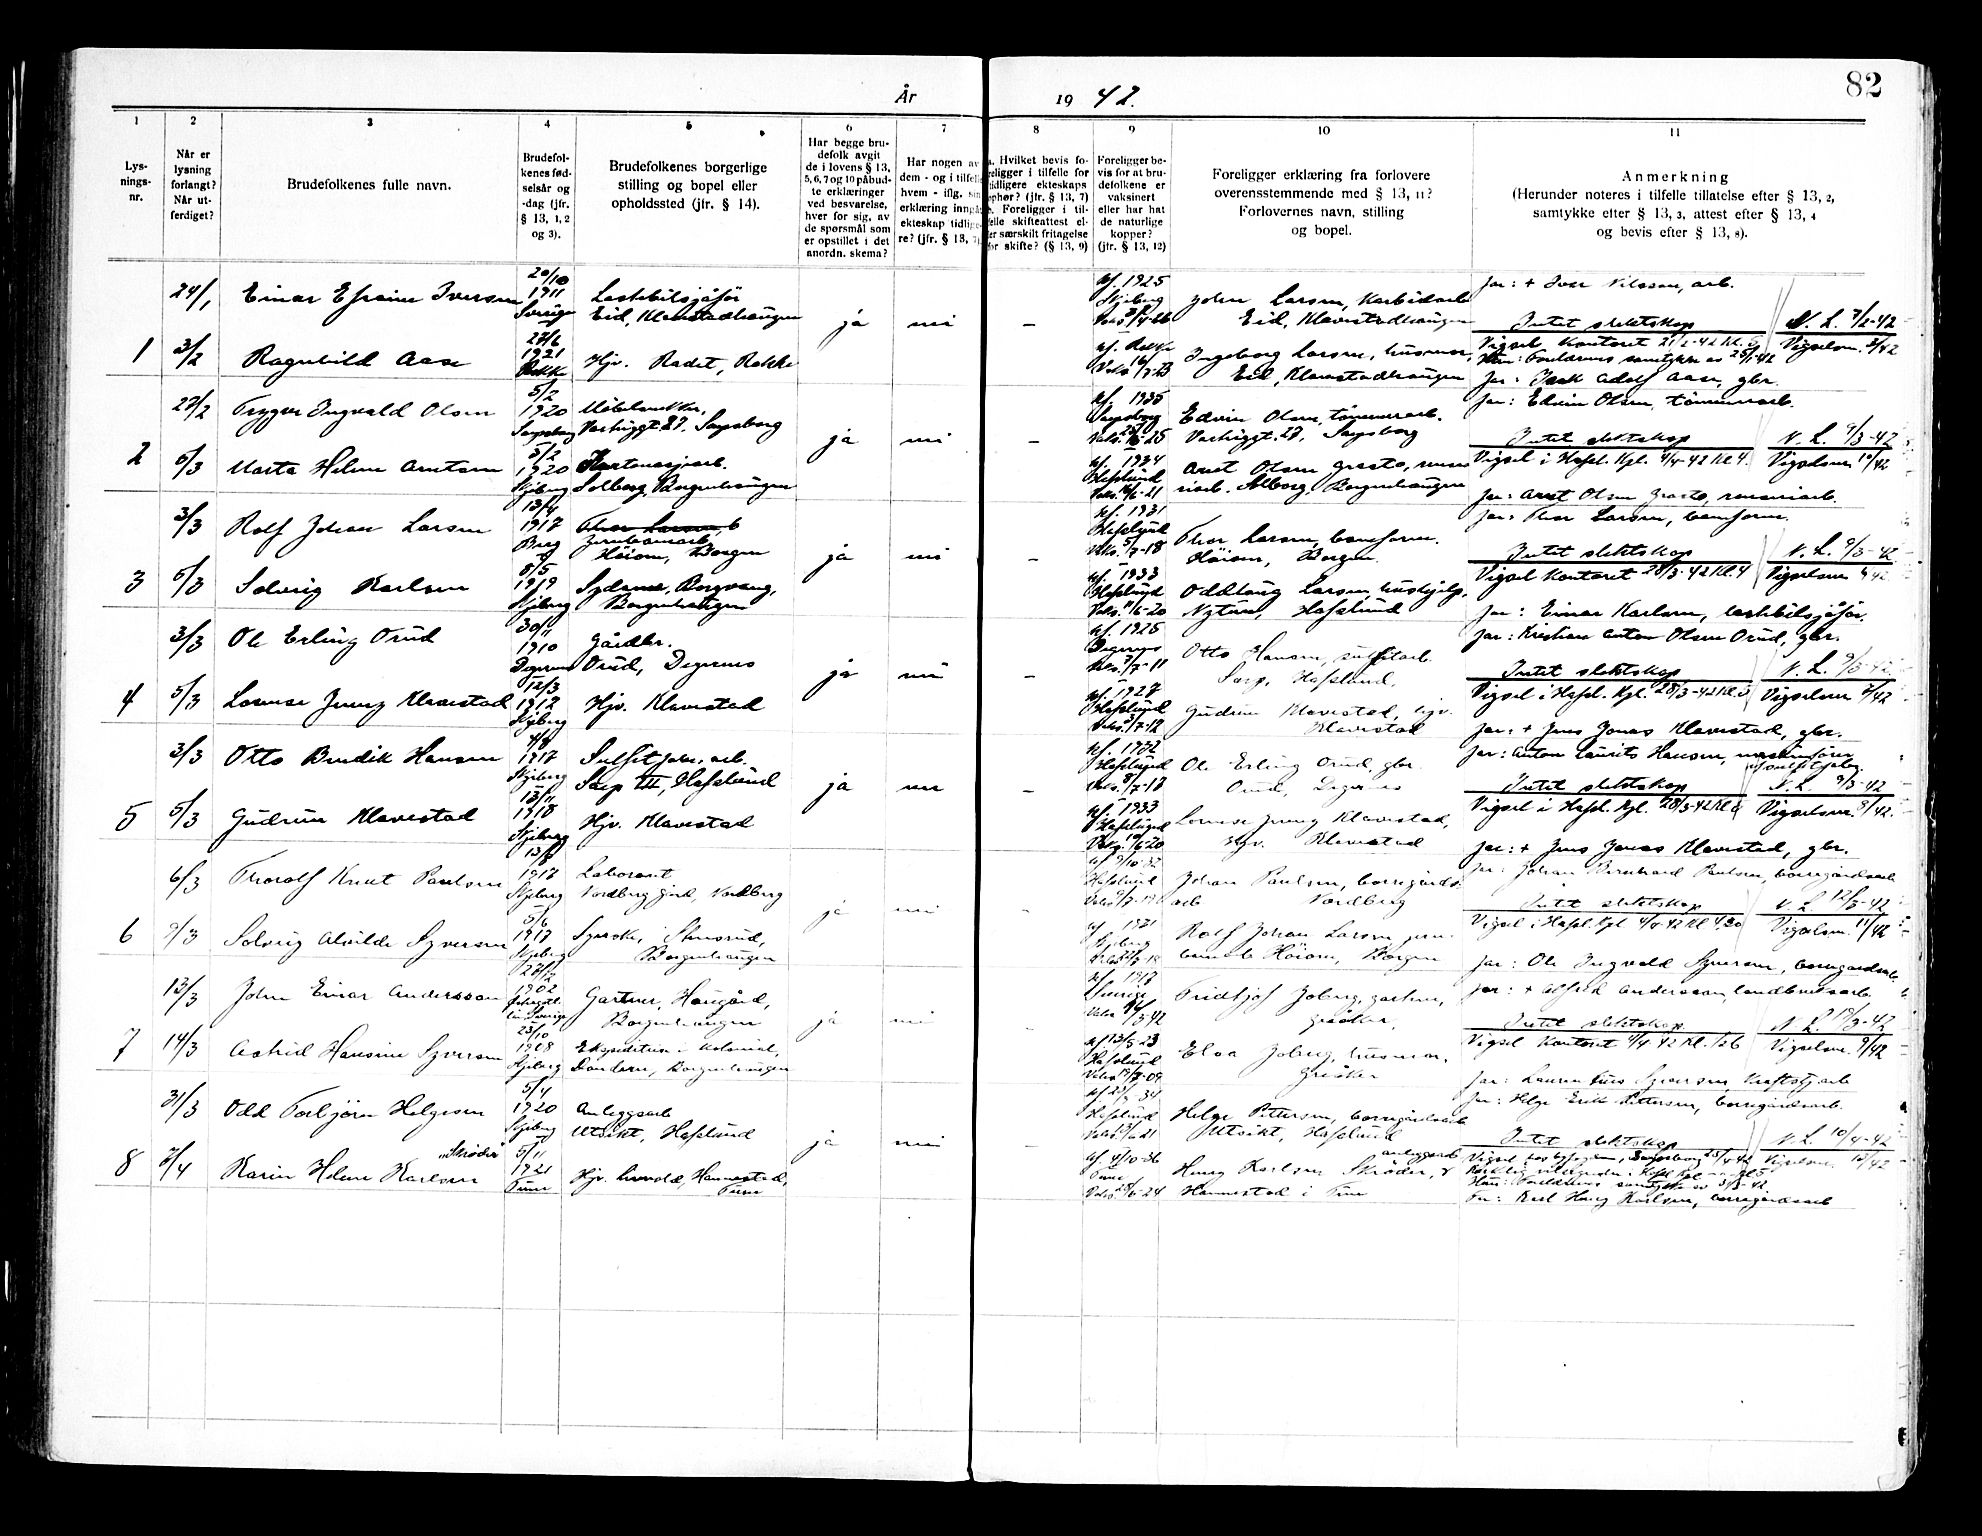 82
År 1942.
1
2
3
4
5
6
7
8
9
10
11
Lys-
nings-
nr.
Når er
lysning
forlangt?
Når ut-
ferdiget?
Brudefolkenes fulle navn.
Brudefol-
kenes fød-
selsår og
-dag (jfr.
§ 13, 1, 2
og 3).
Brudefolkenes borgerlige
stilling og bopel eller
opholdssted (jfr. § 14).
Har begge bru-
defolk avgit
de i lovens § 13,
5, 6, 7 og 10 påbud-
te erklæringer
ved besvarelse,
hver for sig, av
de spørsmål som
er opstillet i det
anordn. skema?
Har nogen av
dem - og i tilfelle
hvem - iflg. sin
erklæring inngått
ekteskap tidlige-
re? (jfr. § 13, 7)
a. Hvilket bevis fo-
religger i tilfelle for
tidligere ekteskaps
ophør? (jfr. § 13, 7)
b. Foreligger i til-
felle skifteattest el-
ler særskilt fritagelse
for skifte? (§ 13, 9)
Foreligger be-
vis for at bru-
defolkene er
vaksinert
eller har hat
de naturlige
kopper?
(jfr. § 13, 12)
Foreligger erklæring fra forlovere
overensstemmende med § 13, 11?
Forlovernes navn, stilling
og bopel.
Anmerkning
(Herunder noteres i tilfelle tillatelse efter § 13, 2,
samtykke efter § 13, 3, attest efter § 13, 4
og bevis efter § 13, 8).
24/1 Einar Efraim Iversen
20/10
1911
Sverige
Lastebilsjåfør
Eid, Klavestadhaugen
ja
nei
—
kf. 1925
Skjeberg
John Larsen, Karbidarb.
Eid, Klavestadhaugen
far: + Iver Nilssen, arb.
Intet slektskap
N. L. 7/2-42
1 3/2 Ragnhild Aase
27/6
1921
Rakke
Hjv. Radet, Rakke
Ingeborg Larsen, husmor,
Eid, Klavestadhaugen
Vigsel Kontoret 21/2-42 Kl. 5
Vigselsnr. 3/42
far: Isak Adolf Aase, gbr.
27/2 Trygve Ingvald Olsen
5/2
1920
Sarpsborg
Møbelsnekker,
Varhuggt. 27, Sarpsborg
ja
nei
—
kf. 1935
Sarpsborg
Edvin Olsen, tømmerarb.
Varhuggt. 27, Sarpsborg
far: Edvin Olsen, tømmerarb.
Intet slektskap
N. L. 9/3-42
2 5/3 Marta Helene Arntsen
5/2
1920
Skjeberg
Kartonasjearb.
Solberg, Borgenhaugen
kf. 1934
Hafslund
Arnt Olsen Grasto, renne-
riarb. Solberg, Borgenhaugen
Vigsel i Hafsl. Kpl. 4/4-42 Kl. 4.
Vigselsnr. 10/42
far: Arnt Olsen Grasto, renneriarb.
3/3 Rolf Johan Larsen
13/4
1917
Berg
Thor Larsen, b
Høiom, Borgen
ja
nei
—
kf. 1931
Hafslund
Vaks. 5/7-18
Thor Larsen, banform.
Høiom, Borgen.
far: Thor Larsen, banform.
Intet slektskap
N. L. 9/3-42
3 5/3 Solveig Karlsen
8/5
1919
Skjeberg
Sydame, Borgvang,
Borgenhaugen
kf. 1933
Hafslund
Oddlaug Larsen, hushjelp,
Nytun, Hafslund
Vigsel Kontoret 28/3-42 Kl. 4
far: Einar Karlsen, lastebilsjåfør.
3/3 Ole Erling Orud
30/11
1910
Degernes
Gårdbr.
Orud, Degernes
ja
nei
—
kf. 1925
Degernes
Vaks. 7/7-11
Otto Hansen, sulfitarb.
Sarp, Hafslund.
far: Kristian Anton Olsen Orud, gbr.
Intet slektskap
N. L. 9/3-42
4 5/3 Lovise Jenny Klavestad
12/3
1912
Skjeberg
Hjv. Klavestad
kf. 1927
Hafslund
Gudrun Klavestad, hjv.
Klavestad
Vigsel i Hafsl. Kpl. 28/3-42 Kl. 5
Vigselsnr. 7/42
far: + Jens Jonas Klavestad, gbr.
3/3 Otto Bendik Hansen
4/8
1917
Skjeberg
Sulfitfabr. arb.
Sarp III, Hafslund
ja
nei
—
kf. 1932
Hafslund
Ole Erling Orud, gbr.
Orud, Degernes
far: Anton Laurits Hansen, maskinfører
Intet slektskap
N. L. 9/3-42
5 5/3 Gudrun Klavestad
13/11
1918
Skjeberg
Hjv. Klavestad
kf. 1933
Hafslund
Lovise Jenny Klavestad,
Hjv. Klavestad
Vigsel i Hafsl. Kpl. 28/3-42 Kl. 5
Vigselsnr. 8/42.
far: + Jens Jonas Klavestad, gbr.
6/3 Thorolf Knut Paulsen
1917
Skjeberg
Laborant
Nordberg gård, Nordberg
ja
nei
—
Hafslund
Johan Paulsen, borregårds-
arb. Nordberg
far: Johan Bernhard Paulsen, borregårdsarb
Intet slektskap
N. L. 12/3-42
6 9/3 Solveig Alvilde Syversen
5/6
1917
Skjeberg
Syerske, Stensrud,
Borgenhaugen
kf. 1931
Skjeberg
Rolf Johan Larsen, jern-
banearb. Høiom, Borgen
Vigsel i Hafsl. Kpl 4/4-42 Kl 4,30
Vigselsnr. 11/42
far: Ole Ingvald Syversen, borregårdsarb.
13/3 John Einar Andersson
27/2
1902
Sverige
Gartner, Haugård,
Borgenhaugen
ja
nei
—
kf. 1917
Sverige
Fridtjof Joberg, gartner,
Greåker,
far: + Alfred Andersson, landbruksarb.
Intet slektskap
N. L. 17/3-42
7 14/3 Astrid Hansine Syversen
23/10
1908
Skjeberg
Ekspeditrise i kolonial,
Dondern, Borgenhaugen
Hafslund
Elsa Joberg, husmor,
Greåker
Vigsel Kontoret 4/4-42 Kl. 1/26
Vigselsnr. 9/42
far: Laurentius Syversen, Kraftstj. arb
31/3 Odd Torbjørn Helgesen
5/4
1920
Skjeberg
Anleggsarb
Utsikt, Hafslund
ja
nei
—
Hafslund
Helge Pettersen, borregårdsarb
Utsikt, Hafslund
far: Helge Erik Pettersen, borregårdsarb.
Intet slektskap
N. L. 10/4-42
8 7/4 Karin Helene Karlsen
"Skrøder"
5/11
1921
Tune
Hjv. Lunvold, Hannestad,
Tune
kf. 4/10-36
Tune
Henry Karlsen Skrøder, anleggsarb
Hannestad i Tune
Vigselsnr. 13/42
Far: Karl Henry Karlsen, borregårdsarb